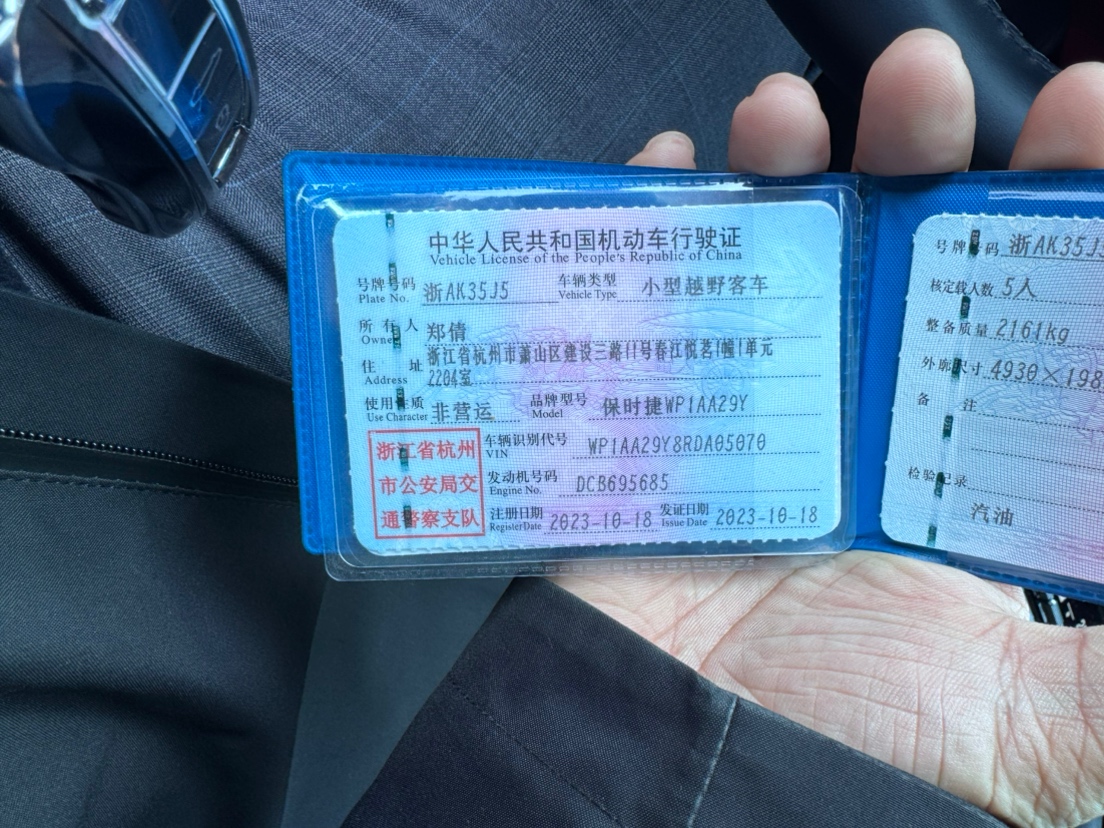 中华人民共和国机动车行驶证
Vehicle License of the People's Republic of China
号牌号码 Plate No. 浙AK35J5 车辆类型 Vehicle Type 小型越野客车
所有人 Owner 郑倩
住址 Address 浙江省杭州市萧山区建设三路11号春江悦茗1幢1单元
2204室
使用性质 Use Character 非营运 品牌型号 Model 保时捷WP1AA29Y
浙江省杭州
市公安局交
通警察支队
车辆识别代号 VIN WP1AA29Y8RDA05070
发动机号码 Engine No. DCB695685
注册日期 Register Date 2023-10-18 发证日期 Issue Date 2023-10-18
号牌号码 浙AK35J5
核定载人数 5人
整备质量 2161kg
外廓尺寸 4930×198
备注
检验记录
汽油